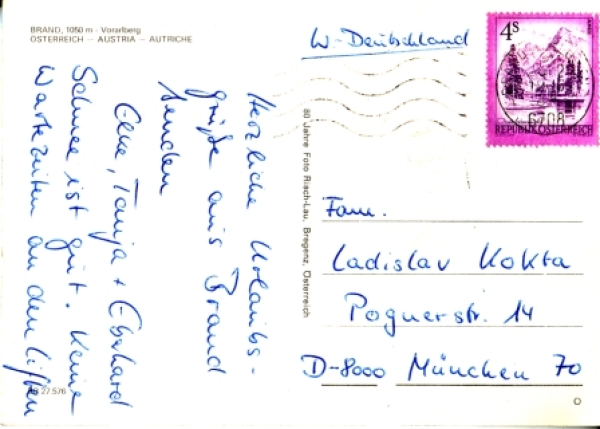 BRAND, 1050 m - Vorarlberg
ÖSTERREICH - AUSTRIA - AUTRICHE
Herzliche Urlaubs-
grüße aus Brand
senden
Elke, Tanja + Eberhard
Schnee ist gut. Keine
Wartezeiten an den Liften
27 576
80 Jahre Foto Risch-Lau, Bregenz, Österreich
W-Deutschland
4S
6708
REPUBLIK ÖSTERREICH
Fam.
Ladislav Kokta
Pognerstr. 14
D-8000 München 70